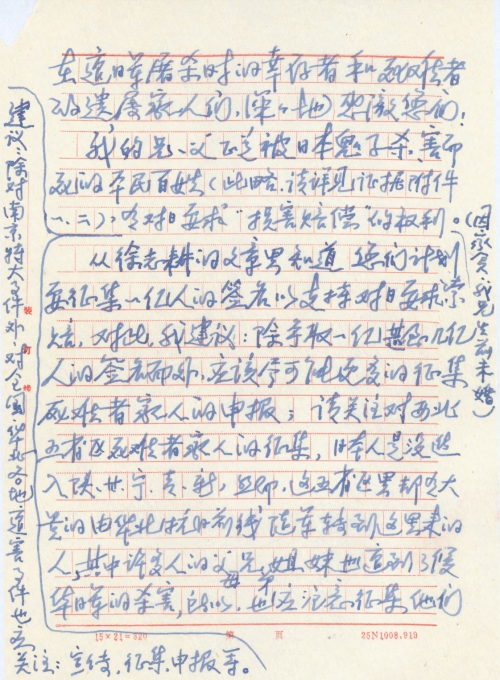 在遭日军屠杀时的幸存者和死难者
的遗属家人们,深深地感激您们!
我的兄、父正是被日本鬼子杀害而
死的平民百姓(此略,请详见证据附件
一、二),有对日要求“损害赔偿”的权利。
从徐志耕的文章里知道 您们计划
要征集一亿人的签名以支持对日要求索
赔,对此,我建议:除争取一亿甚至几亿
人的签名而外,应该尽可能更多的征集
死难者家人的申报;请关注对西北
五省区死难者家人的征集,日本人是没进
入陕、甘、宁、青、新,但却,这五省区里却有大
量的由华北抗日前线随军转到这里来的
人,其中许多人的父兄姐妹也遭到了侵
母 弟
华日军的杀害,所以,也应注意征集他们
15×21=320 第 页 25N1008.919
(因家贫,我兄生前未婚)
建议:除对南京特大事件外,对全国华北各地遭害事件也应
关注:宣传,征集,申报等。
装订线